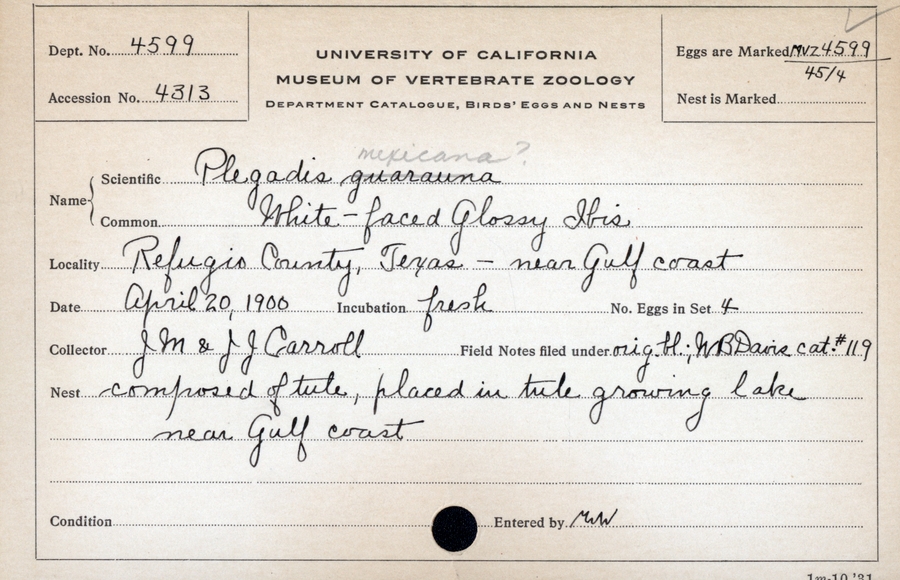 Dept. No. 4599
Accession No. 4313
UNIVERSITY OF CALIFORNIA
MUSEUM OF VERTEBRATE ZOOLOGY
DEPARTMENT CATALOGUE, BIRDS' EGGS AND NESTS
Eggs are Marked MVZ 4599
45/4
Nest is Marked
mexicana?
Name Scientific Plegadis guarauna
Common White-faced Glossy Ibis
Locality Refugio County, Texas - near Gulf coast
Date April 20, 1900 Incubation fresh No. Eggs in Set 4
Collector J M & J J Carroll Field Notes filed under orig. bl.; WB Davis cat. #119
Nest composed of tule, placed in tule growing lake
near Gulf coast
Condition Entered by
1m-10,'31